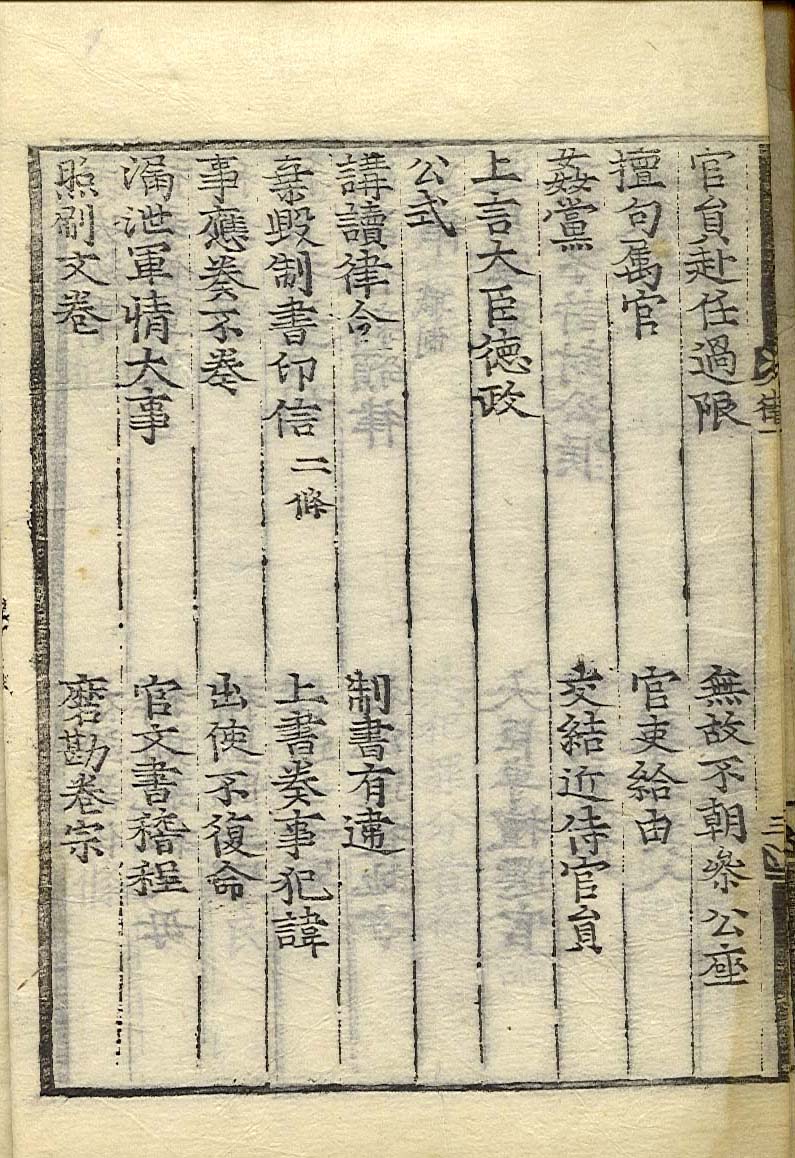 官員赴任過限 無故不朝叅公座
擅句屬官 官吏給由
姦黨 交結近侍官員
上言大臣德政
公式
講讀律令 制書有違
棄毀制書印信 二條 上書奏事犯諱
事應奏不奏 出使不復命
漏泄軍情大事 官文書稽程
照刷文卷 磨勘卷宗
律一
三